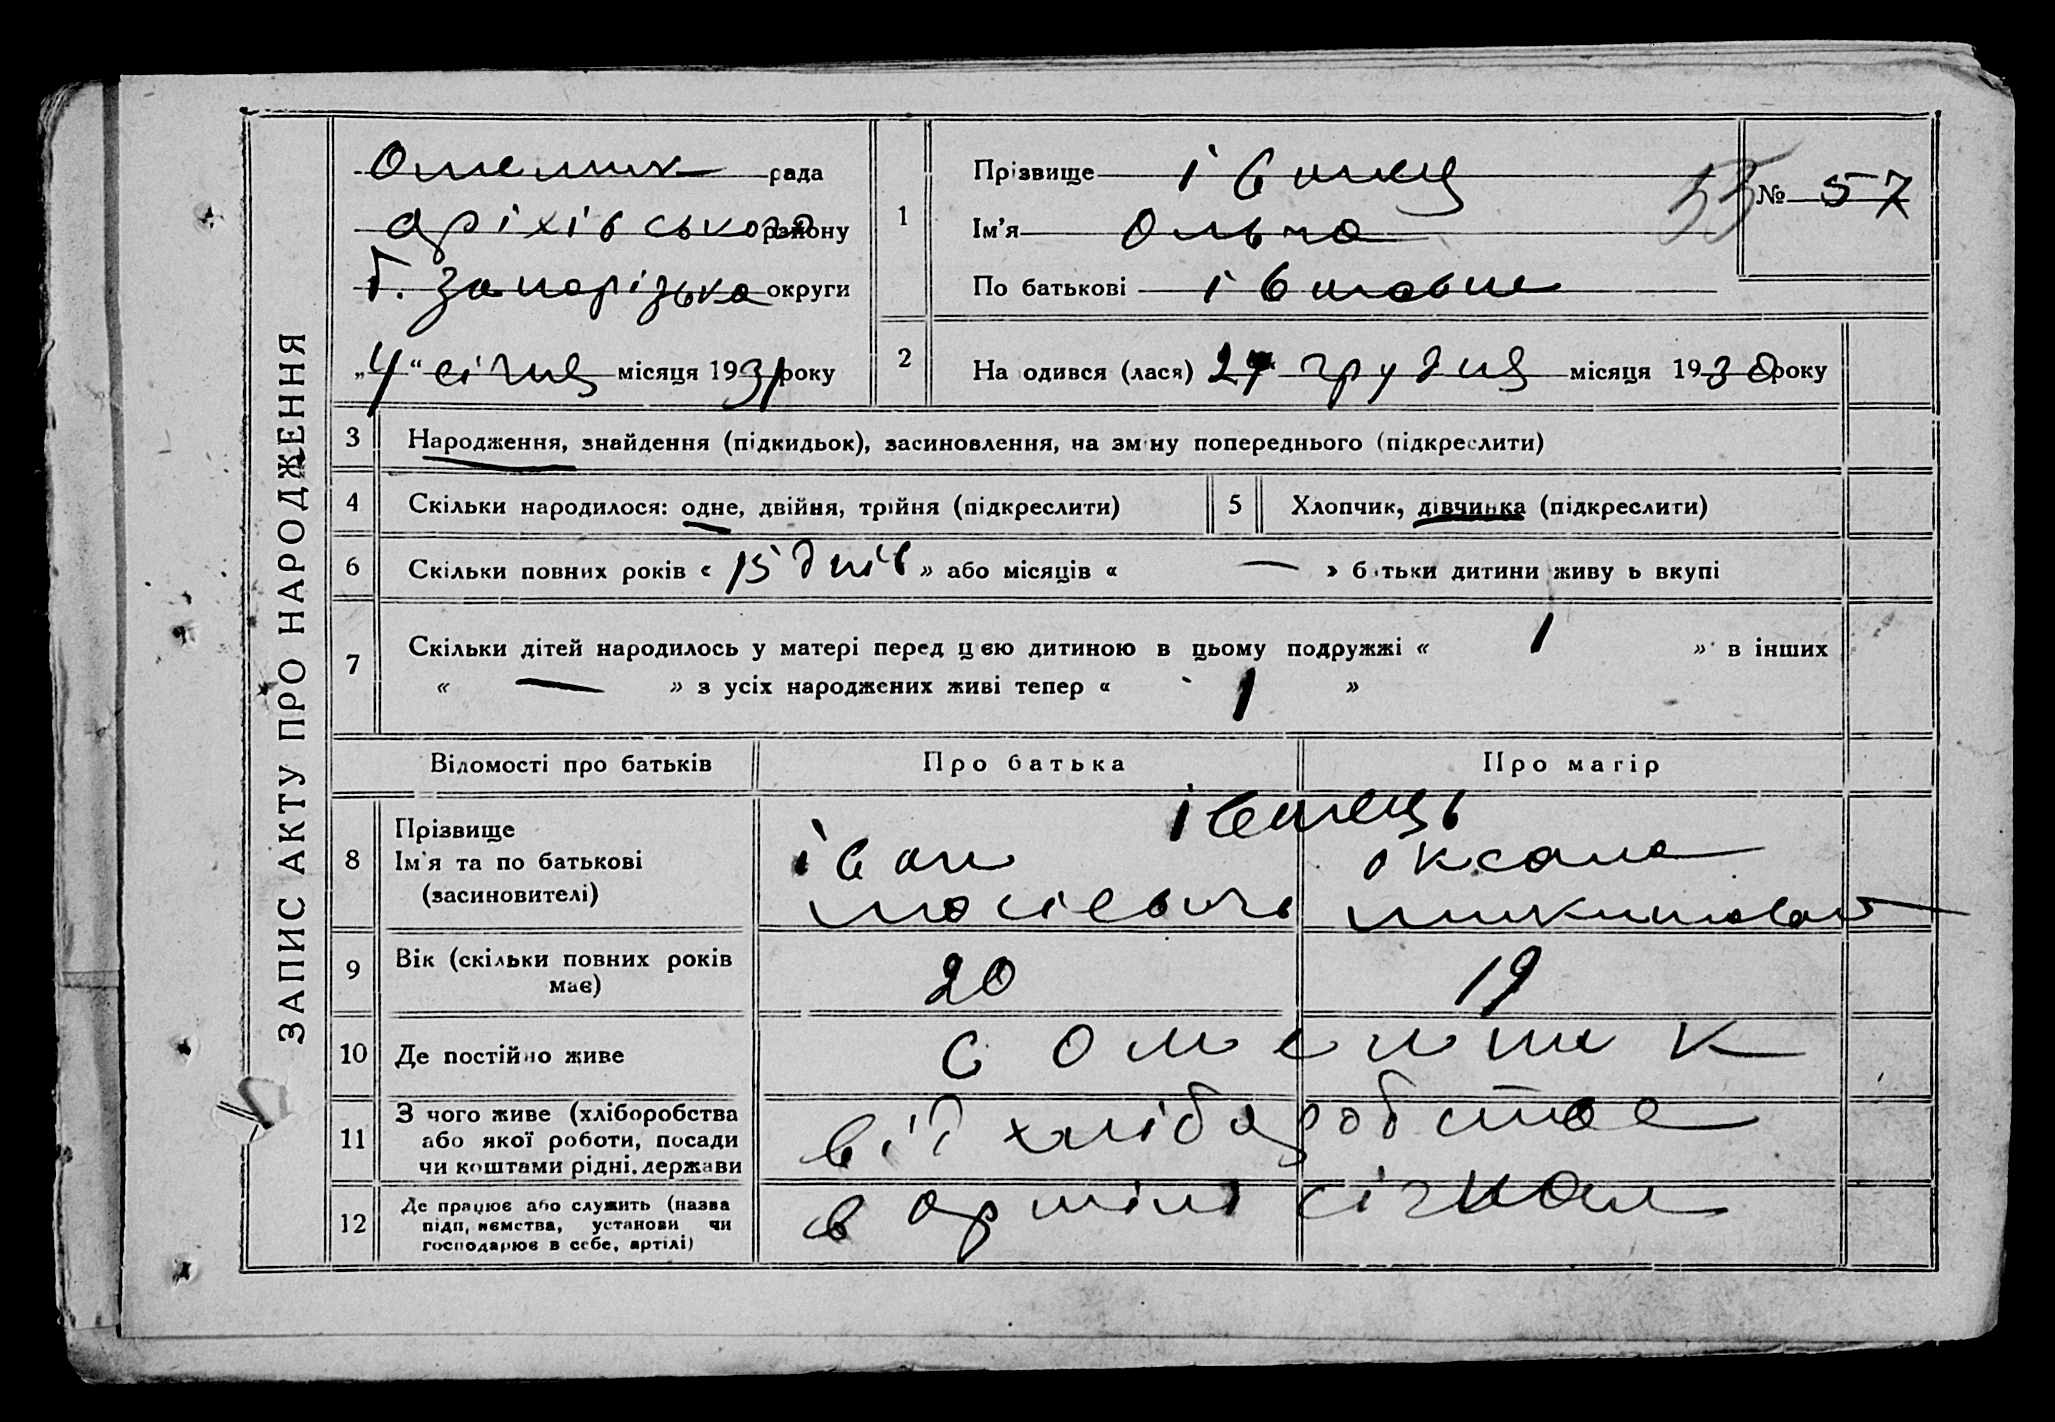 ЗАПИС АКТУ ПРО НАРОДЖЕННЯ
Омельник рада
оріхівського району
Г. Запорізька округи
„4“ січня місяця 1931 року
1
Прізвище Івинец
Ім'я Ольга
По батькові Івановна
53
№ 57
2
На одився (лася) 24 грудня місяця 1930 року
3 Народження, знайдення (підкидьок), засиновлення, на зміну попереднього (підкреслити)
4 Скільки народилося: одне, двійня, трійня (підкреслити)
5 Хлопчик, дівчинка (підкреслити)
6 Скільки повних років « 15 днів » або місяців « — » батьки дитини живуть вкупі
7 Скільки дітей народилось у матері перед цією дитиною в цьому подружжі « 1 » в інших
« — » з усіх народжених живі тепер « 1 »
Відомості про батьків Про батька Про матір
8 Прізвище
Ім'я та по батькові
(засиновителі)
Івинець
Іван
Оксана
9 Вік (скільки повних років
має)
20 19
10 Де постійно живе
с Омельник
11 З чого живе (хліборобства
або якої роботи, посади
чи коштами рідні, держави
від хліборобства
12 Де працює або служить (назва
підприємства, установи чи
господарює в себе, артілі)
в артілі сігнал